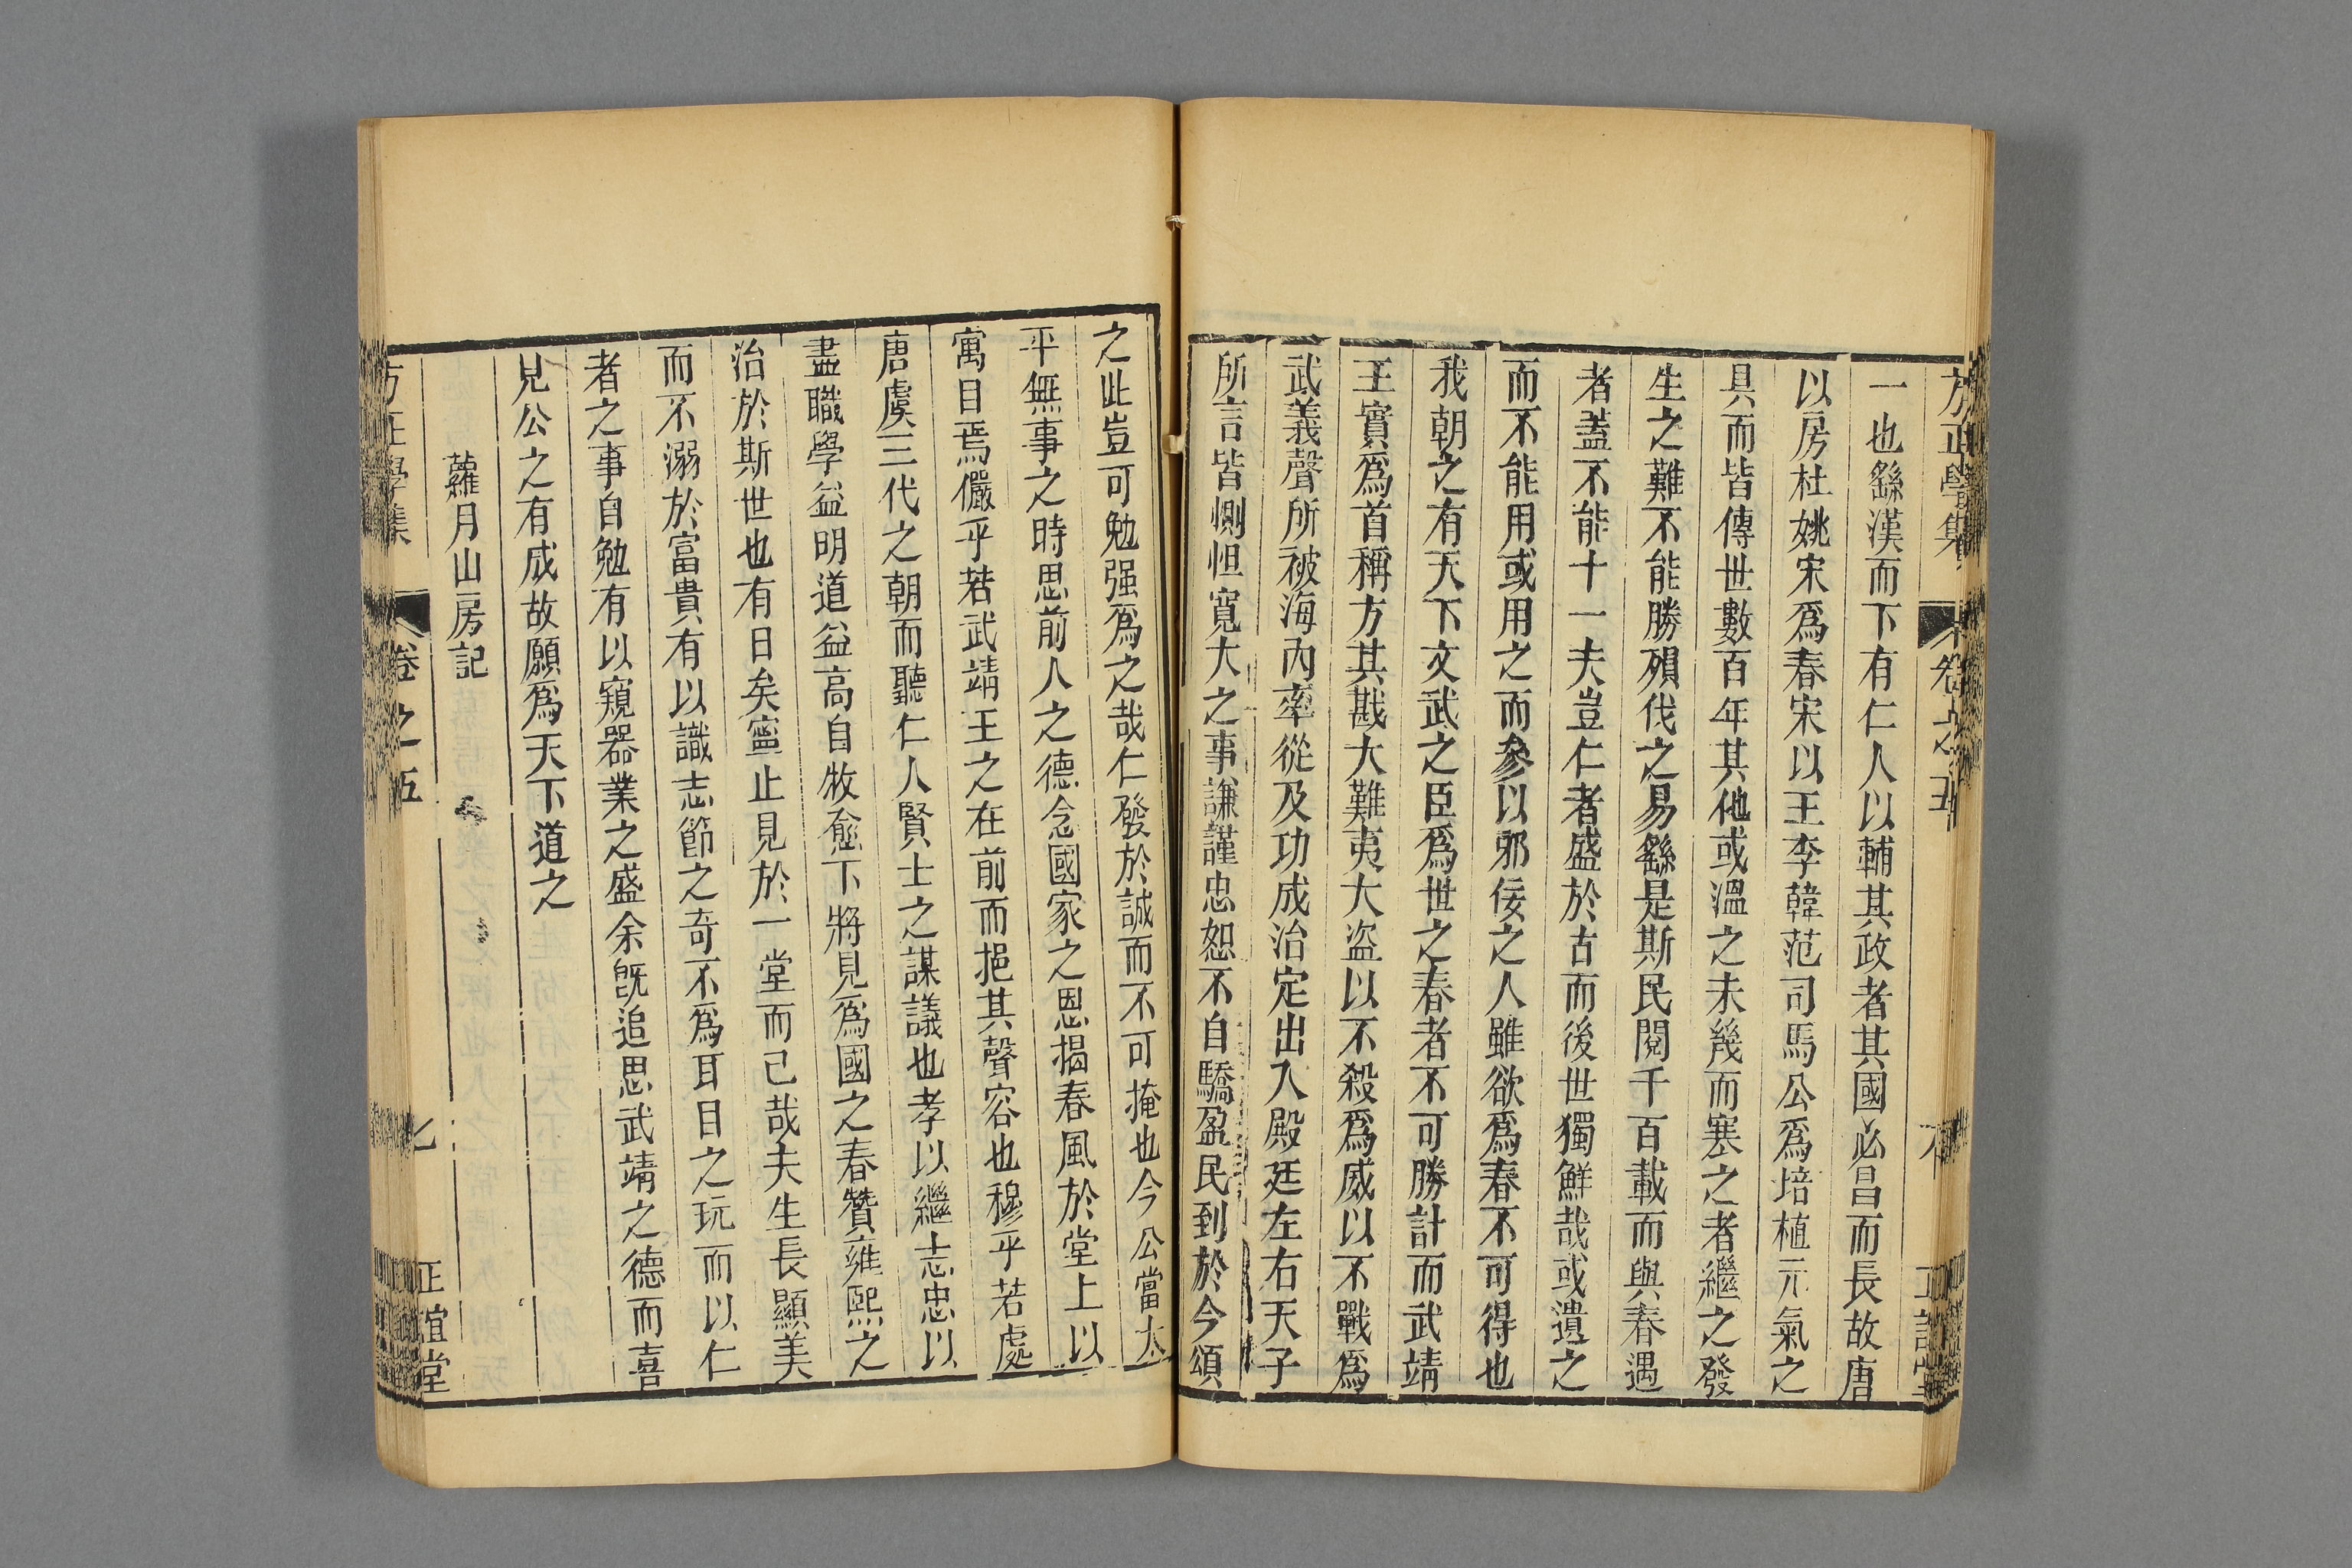 方正學集 卷之五 六 正誼堂
一也繇漢而下有仁人以輔其政者其國必昌而長故唐
以房杜姚宋爲春宋以王李韓范司馬公爲培植元氣之
具而皆傳世數百年其他或溫之未幾而寒之者繼之發
生之難不能勝殞伐之易繇是斯民閱千百載而與春遇
者蓋不能十一夫豈仁者盛於古而後世獨鮮哉或遺之
而不能用或用之而參以邪佞之人雖欲爲春不可得也
我朝之有天下文武之臣爲世之春者不可勝計而武靖
王實爲首稱方其戡大難夷大盜以不殺爲威以不戰爲
武義聲所被海內率從及功成治定出入殿廷左右天子
所言皆惻怛寬大之事謙謹忠恕不自驕盈民到於今頌
之此豈可勉强爲之哉仁發於誠而不可掩也今公當太
平無事之時思前人之德念國家之恩揭春風於堂上以
寓目焉儼乎若武靖王之在前而挹其聲容也穆乎若處
唐虞三代之朝而聽仁人賢士之謀議也孝以繼志忠以
盡職學益明道益高自牧愈下將見爲國之春贊雍熙之
治於斯世也有日矣寧止見於一堂而已哉夫生長顯美
而不溺於富貴有以識志節之奇不爲耳目之玩而以仁
者之事自勉有以窺器業之盛余旣追思武靖之德而喜
見公之有成故願爲天下道之
蘿月山房記
方正學集 卷之五 七 正誼堂